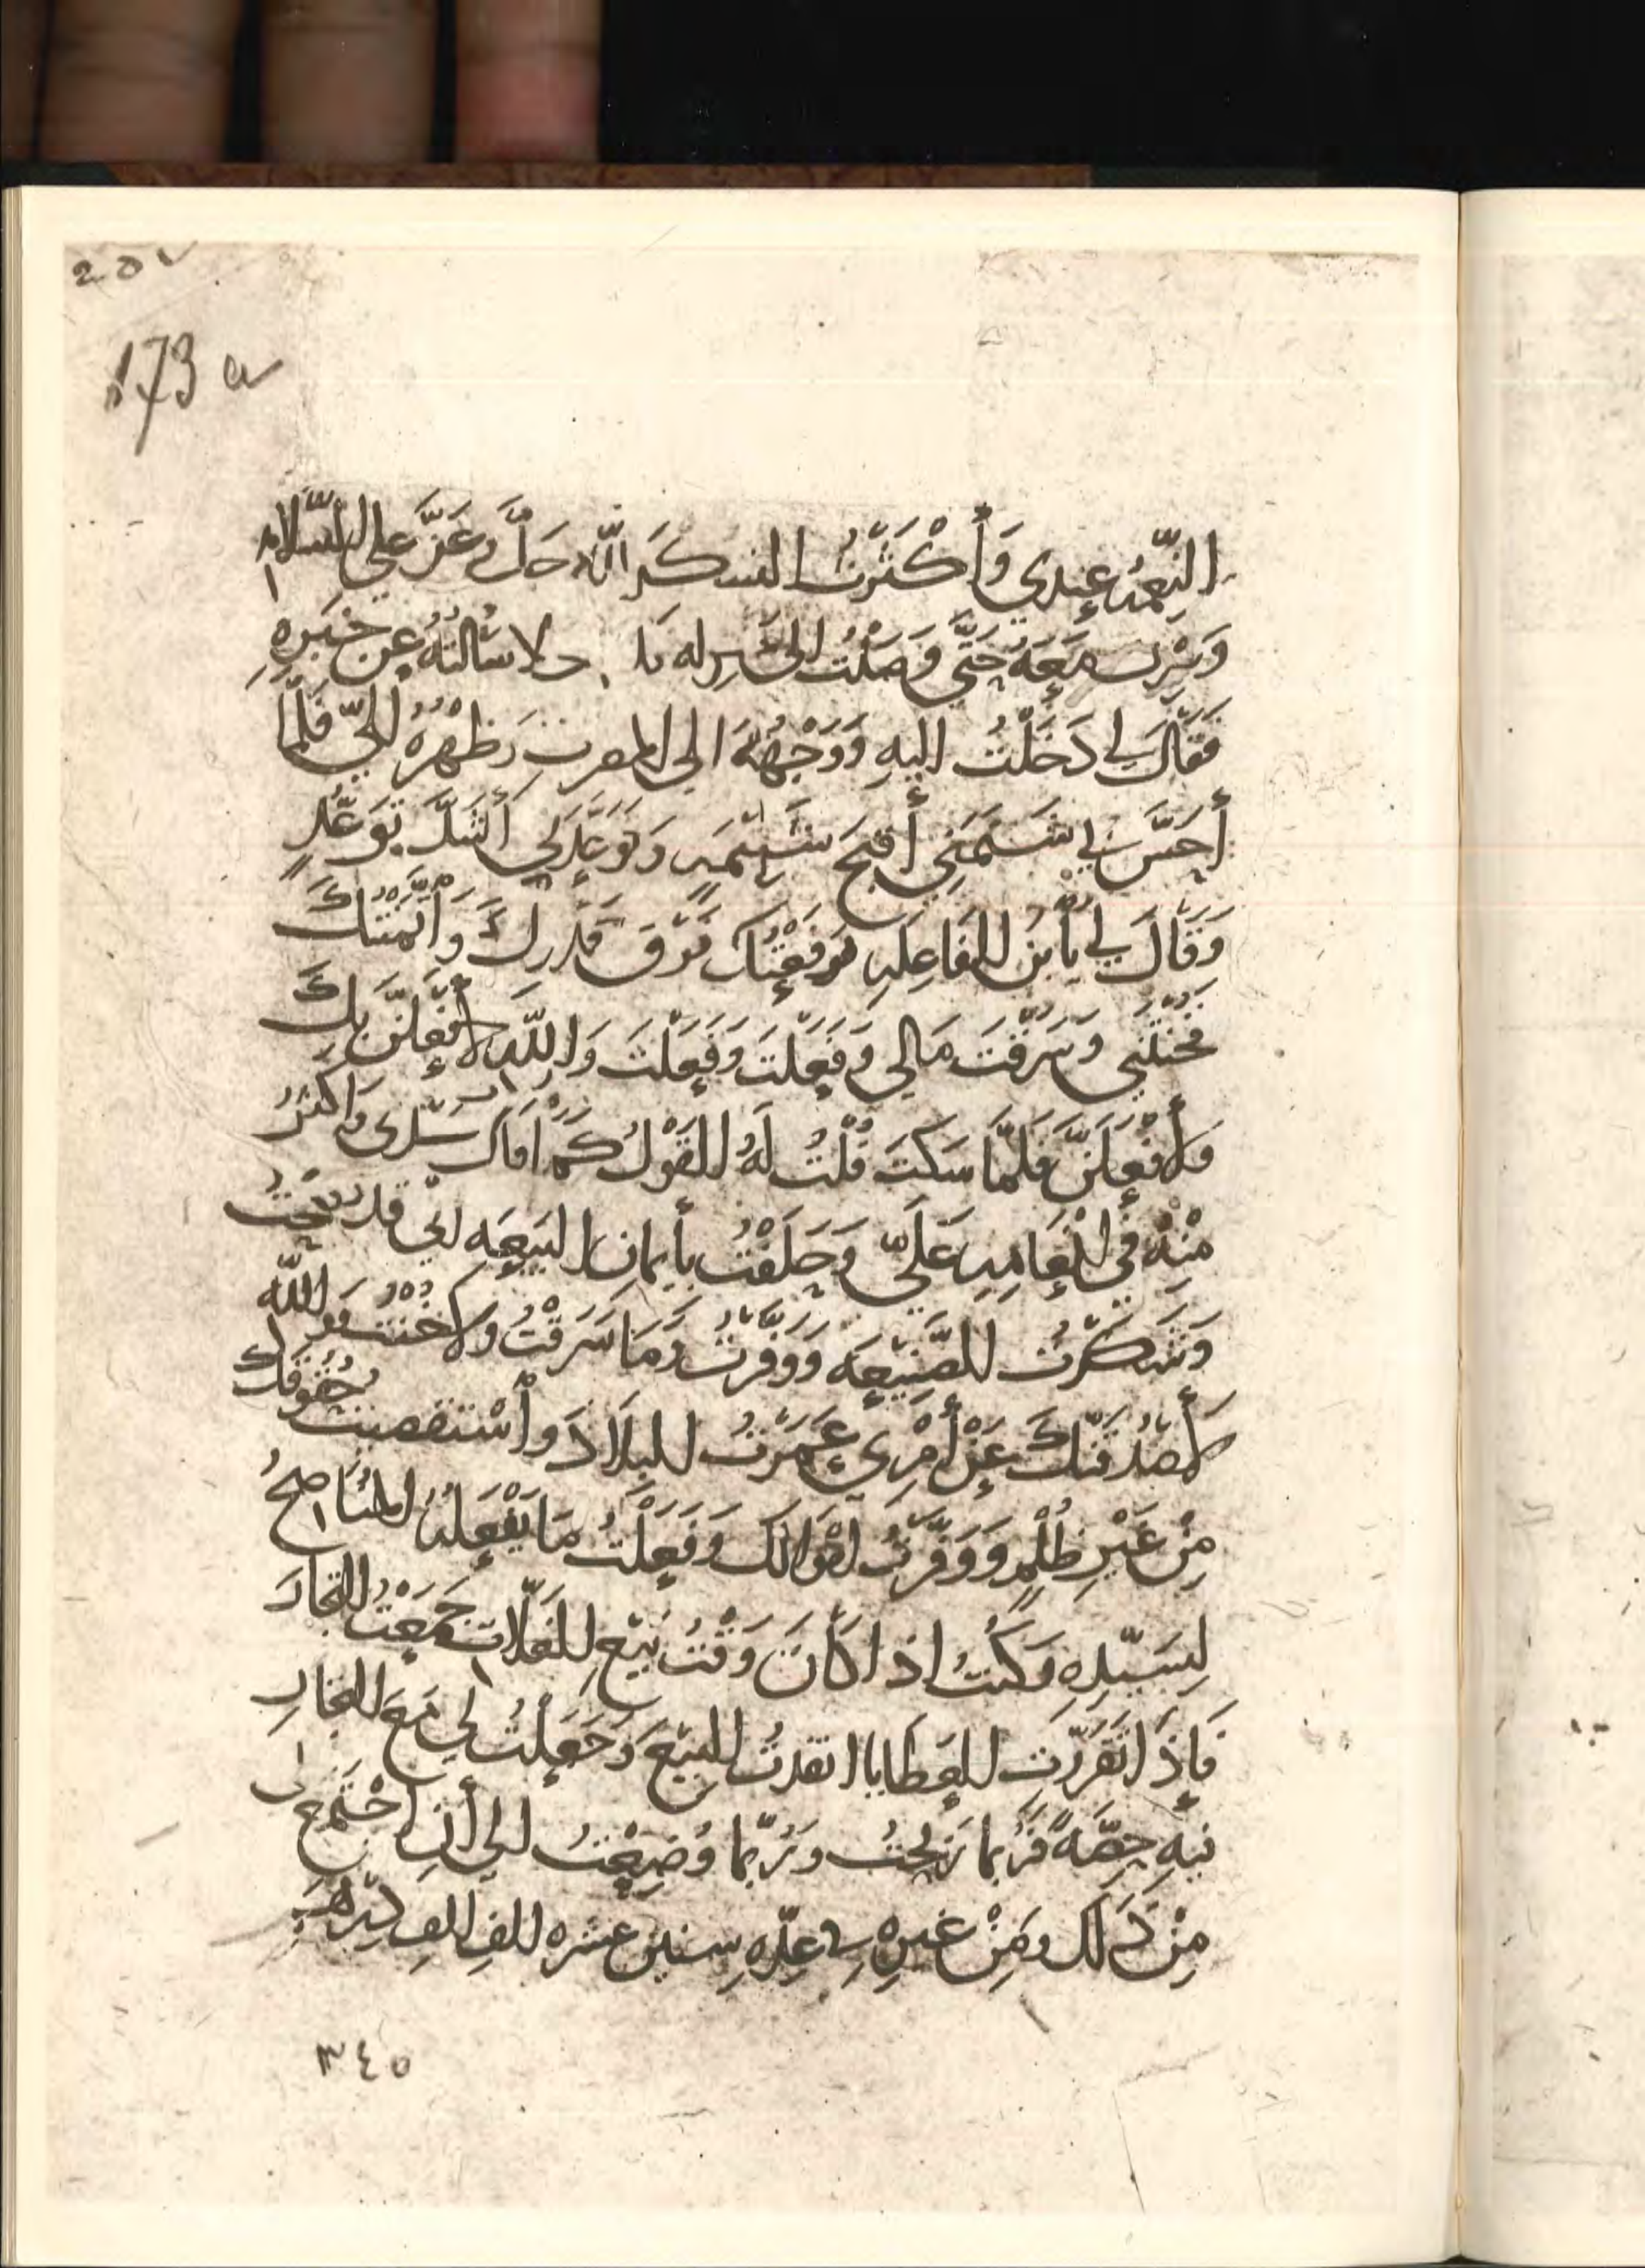 20
173 a
النِّعمَهُ عِندِي وَأَكْثَرْتُ الشكرَ للهِ جَلَّ وعَزَّ علي السَّلامه
وَسِرْت مَعَهُ حَتَّى وَصَلْتُ الى منزله سالته عن خَبَرِهِ
فَقَالَ لي دَخَلْتُ اليهِ وَوَجْهُهُ الى المعرب وَظَهْرُهُ اليّ فَلَمَّا
أحَسَّ بي شَتَمَنِي أقبَحَ شَتِيمَهٍ وَتَوَعَّدَني أشَدَّ تَوَعُّدٍ
وَقَالَ لي يأبنَ الفَاعِلَهِ رَفَعْتُكَ فَوقَ قَدْرِكَ وَأتَمَنْتُكَ
فَخُنْتَنِي وَسَرَقتَ مَالِي وَفَعَلتَ وَفَعَلتَ وَاللّهِ لأفعَلَنَّ بِكَ
وَلأفعَلَنَّ فَلَمَّا سَكَتَ قُلْتُ لَهُ القَوْلُ كَمَا وَأكثَرُ
مِنْهُ في إنعَامِهِ عَلَيّ وَحَلَفْتُ بأيمانِ البَيعَهِ انّي قد نصَحْتُ
وَشَكَرْتُ الصَّنِيعَه وَوَفَّرْتُ وَمَا سَرَقْتُ ولا خُنْتُ وواللّه
لأصْدُقَنَّكَ عَنْ أمْرِي عَمَرْتُ البِلادَ وأسْتَقصيت حُقُوقَكَ
مِنْ غَيْرِ ظُلْمٍ وَوَفَّرْتُ اموَالَكَ وَفَعَلتُ مَا يَفْعَلُهُ المُنَاصِحُ
لِسَيِّدِهِ وَكُنتُ اذا كَانَ وَقْتُ بَيْعِ الغَلّاتِ جَمَعْتُ التجارَ
فَإِذَا تَقَرَّرَتِ العَطَايا انقدتُ البَيْعَ وَجَعَلتُ لي مَعَ التجارِ
فيهِ حِصَّةً فَرُبما رَبحْتُ وَرُبَّما وُضِعْتُ الي أنِ اجْتَمَعَ لي
مِنْ ذَلك وَمِنْ غيرِهِ في عِدّهِ سِنينَ عشره الفِ الفِ دِرْهَمٍ
٣٤٥